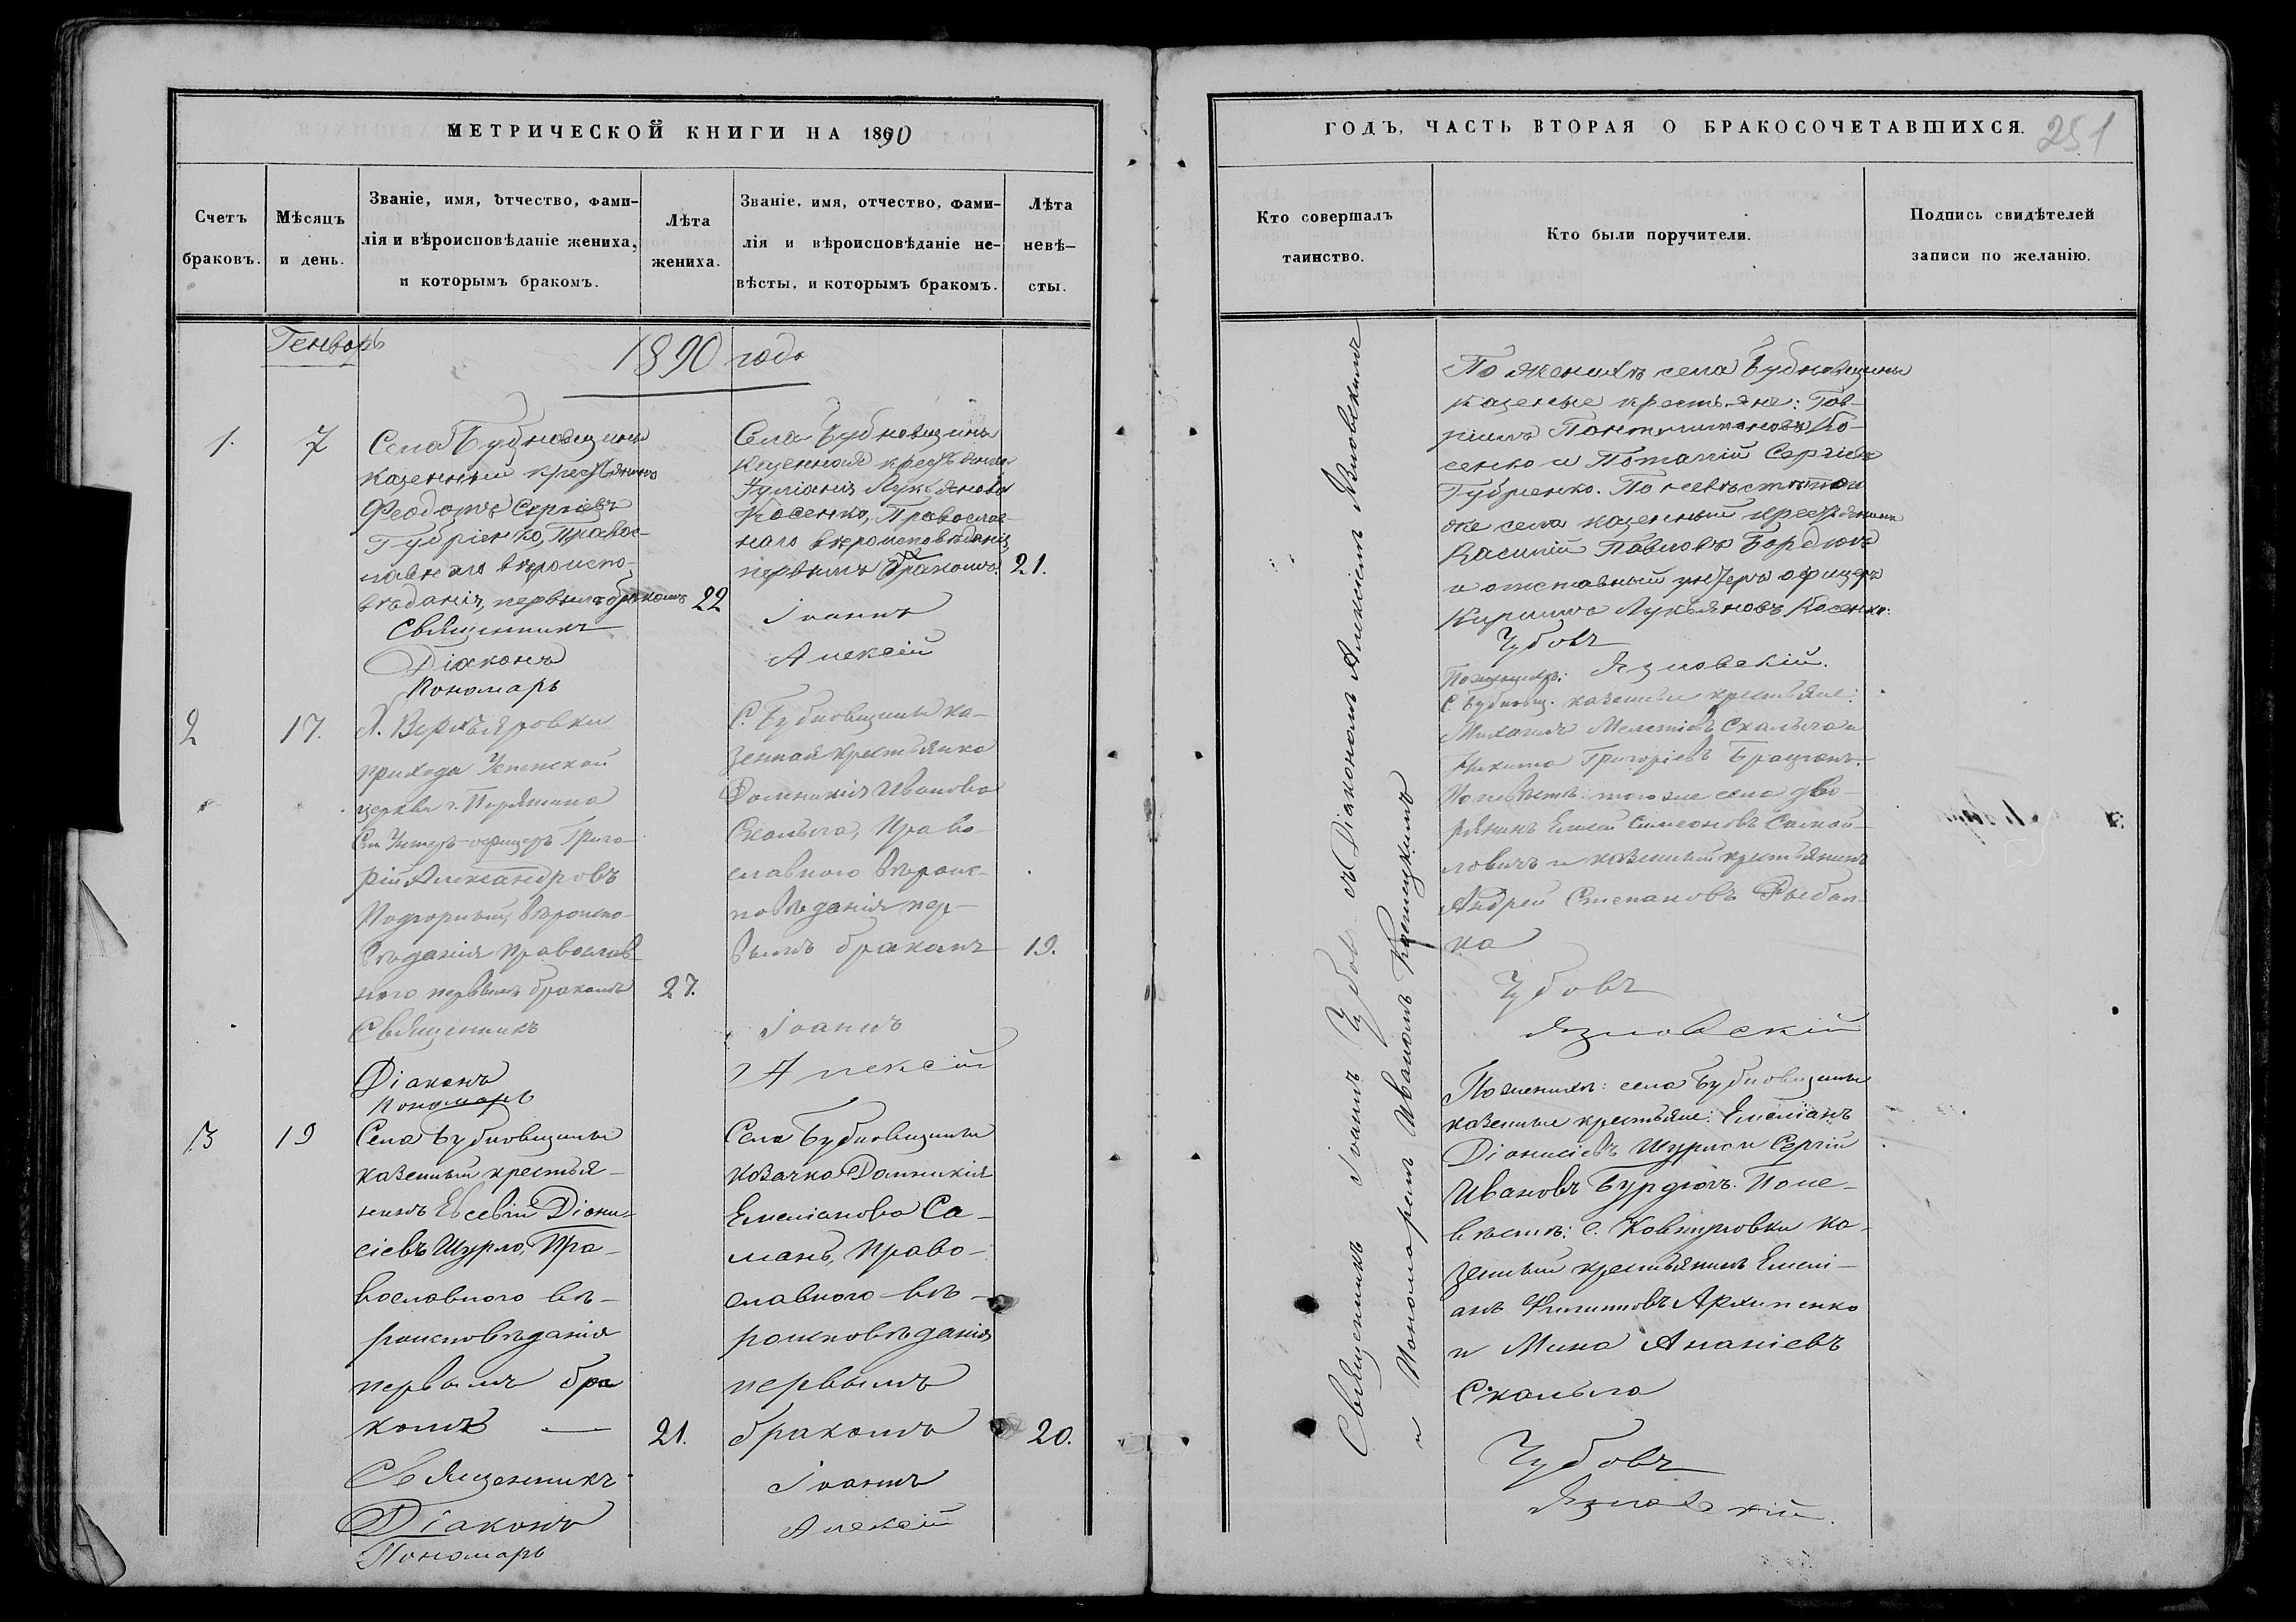 МЕТРИЧЕСКОЙ КНИГИ НА 1890
Счетъ
браковъ.
Мѣсяцъ
и день.
Званіе, имя, отчество, фами-
лія и вѣроисповѣданіе жениха,
и которымъ бракомъ.
Лѣта
жениха.
Званіе, имя, отчество, фами-
лія и вѣроисповѣданіе не-
вѣсты, и которымъ бракомъ.
Лѣта
невѣ-
сты.
Генварь
1890 года
1.
7
Села Бубновщины
казенный крестьянинъ
Феодотъ Сергіевъ
Губріенко, Правос-
лавнаго вѣроиспо-
вѣданія, первымъ бракомъ
22
Села Бубновщины
казенная крестьянка
Іуліанія Лукьянова
Косенко, Православ-
наго вѣроисповѣданія
первымъ бракомъ.
21.
Священникъ Іоаннъ
Діаконъ Алексій
Пономарь
2
17.
Х. Верхъяровки
прихода Успенской
церкви г. Пирятина
Унтеръ-офицеръ Григо-
рій Александровъ
Подгорный, вѣроиспо-
вѣданія православ-
ного первымъ бракомъ
27.
С. Бубновщины ка-
зенная крестьянка
Домникія Иванова
Скалыга, Право-
славного вѣроис-
повѣданія пер-
вымъ бракомъ
19.
Священникъ Іоаннъ
Діаконъ Алексій
Пономарь
3
19
Села Бубновщины
казенный крестья-
нинъ Евсевій Діони-
сіевъ Шурло, Пра-
вославного вѣ-
роисповѣданія
первымъ бра
комъ —
21.
Села Бубновщины
козачка Домникія
Емеліанова Са-
мань, Право-
славного вѣ-
роисповѣданія
первымъ
бракомъ
20.
Священникъ Іоаннъ
Діаконъ Алексій
Пономарь
ГОДЪ, ЧАСТЬ ВТОРАЯ О БРАКОСОЧЕТАВШИХСЯ.
251
Кто совершалъ
таинство.
Кто были поручители.
Подпись свидѣтелей
записи по желанію.
Священникъ Іоаннъ Чубовъ съ Діакономъ Алексіемъ Язловскимъ
и Пономаремъ Иваномъ
По женихѣ села Бубновщины
казенные крестьяне: Гав-
ріилъ Ко-
сенко и Потапій Сергіевъ
Губріенко. По невѣстѣ: того
же села казенный крестьянинъ
Василій Павловъ Бордюгъ
и отставный унтеръ офицеръ
Кирилла Лукьяновъ Косенко:
Чубовъ
Язловскій.
По женихѣ:
С. Бубновщ. казенные крестьяне:
Михаилъ Мелетіевъ Скалыга и
Никита Григоріевъ
По невѣстѣ: того же села дво-
рянинъ Елисей Симеоновъ Самой-
ловичъ и казенный крестьянинъ
Андрей Степановъ Рыбал-
ка
Чубовъ
Язловскій
По женихѣ: села Бубновщины
казенные крестьяне: Емеліанъ
Діонисіевъ Шурло и Сергій
Ивановъ Бурдюгъ. По не-
вѣстѣ: с. Ковтуновки ка-
зенный крестьянинъ Емелі-
анъ Филипповъ Архипенко
и Мина Ананіевъ
Скалыга
Чубовъ
Язловскій.